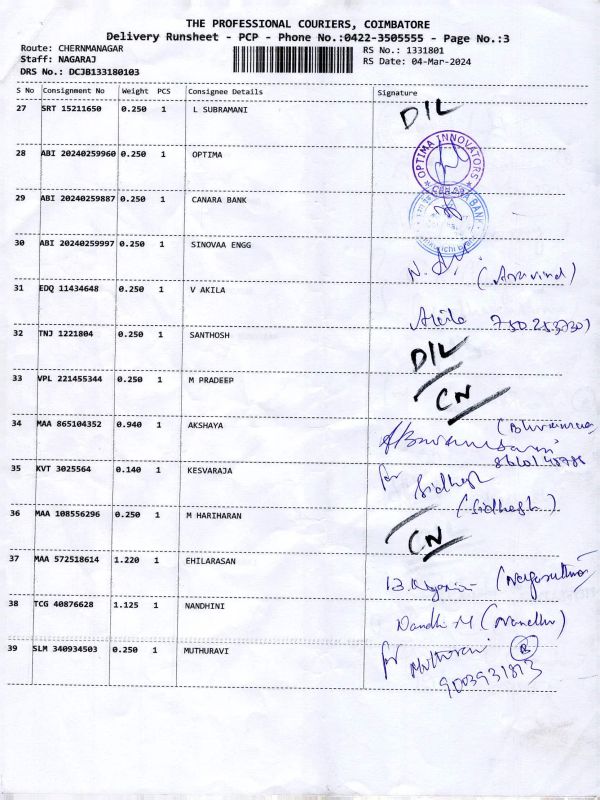 THE PROFESSIONAL COURIERS, COIMBATORE
Delivery Runsheet - PCP - Phone No.:0422-3505555 - Page No.:3
Route: CHERNMANAGAR RS No.: 1331801
Staff: NAGARAJ RS Date: 04-Mar-2024
DRS No.: DCJB133180103
S No Consignment No Weight PCS Consignee Details Signature
27 SRT 15211650 0.250 1 L SUBRAMANI D/L
28 ABI 20240259960 0.250 1 OPTIMA OPTIMA INNOVATORS
29 ABI 20240259887 0.250 1 CANARA BANK BANK
30 ABI 20240259997 0.250 1 SINOVAA ENGG (Aravind)
31 EDQ 11434648 0.250 1 V AKILA Akila
32 TNJ 1221804 0.250 1 SANTHOSH D/L
33 VPL 221455344 0.250 1 M PRADEEP CN
34 MAA 865104352 0.940 1 AKSHAYA
35 KVT 3025564 0.140 1 KESVARAJA for Sidhesh (Sidhesh)
36 MAA 108556296 0.250 1 M HARIHARAN CN
37 MAA 572518614 1.220 1 EHILARASAN
38 TCG 40876628 1.125 1 NANDHINI Nandhi M
39 SLM 340934503 0.250 1 MUTHURAVI for Muthuravi
9003931873